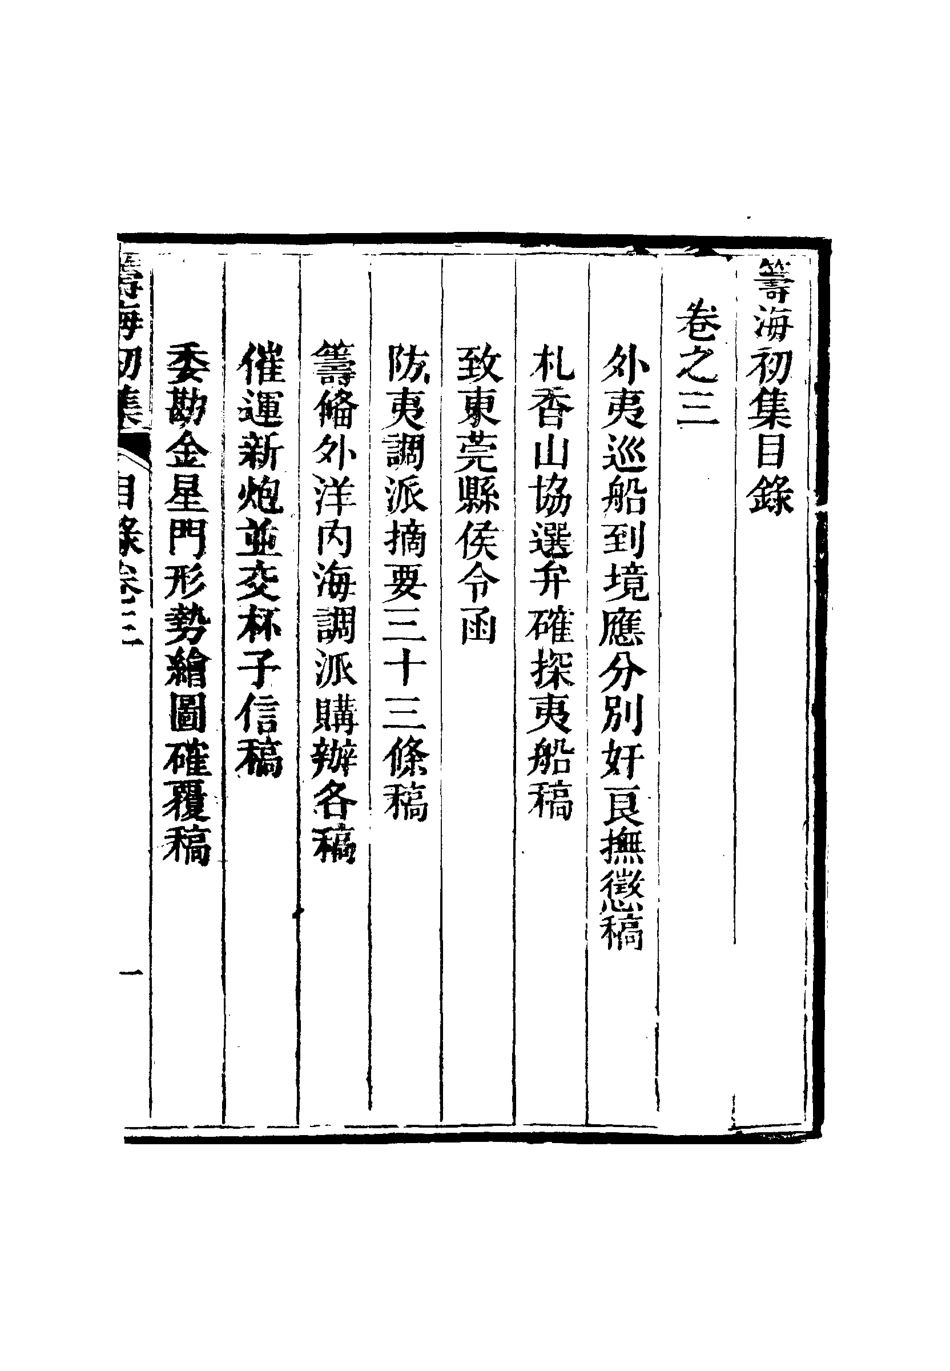 籌海初集目錄
卷之三
外夷巡船到境應分別奸良撫懲稿
札香山協選弁確探夷船稿
致東莞縣侯令函
防夷調派摘要三十三條稿
籌備外洋內海調派購辦各稿
催運新炮並交杯子信稿
委勘金星門形勢繪圖確覆稿
籌海初集 目錄卷三 一